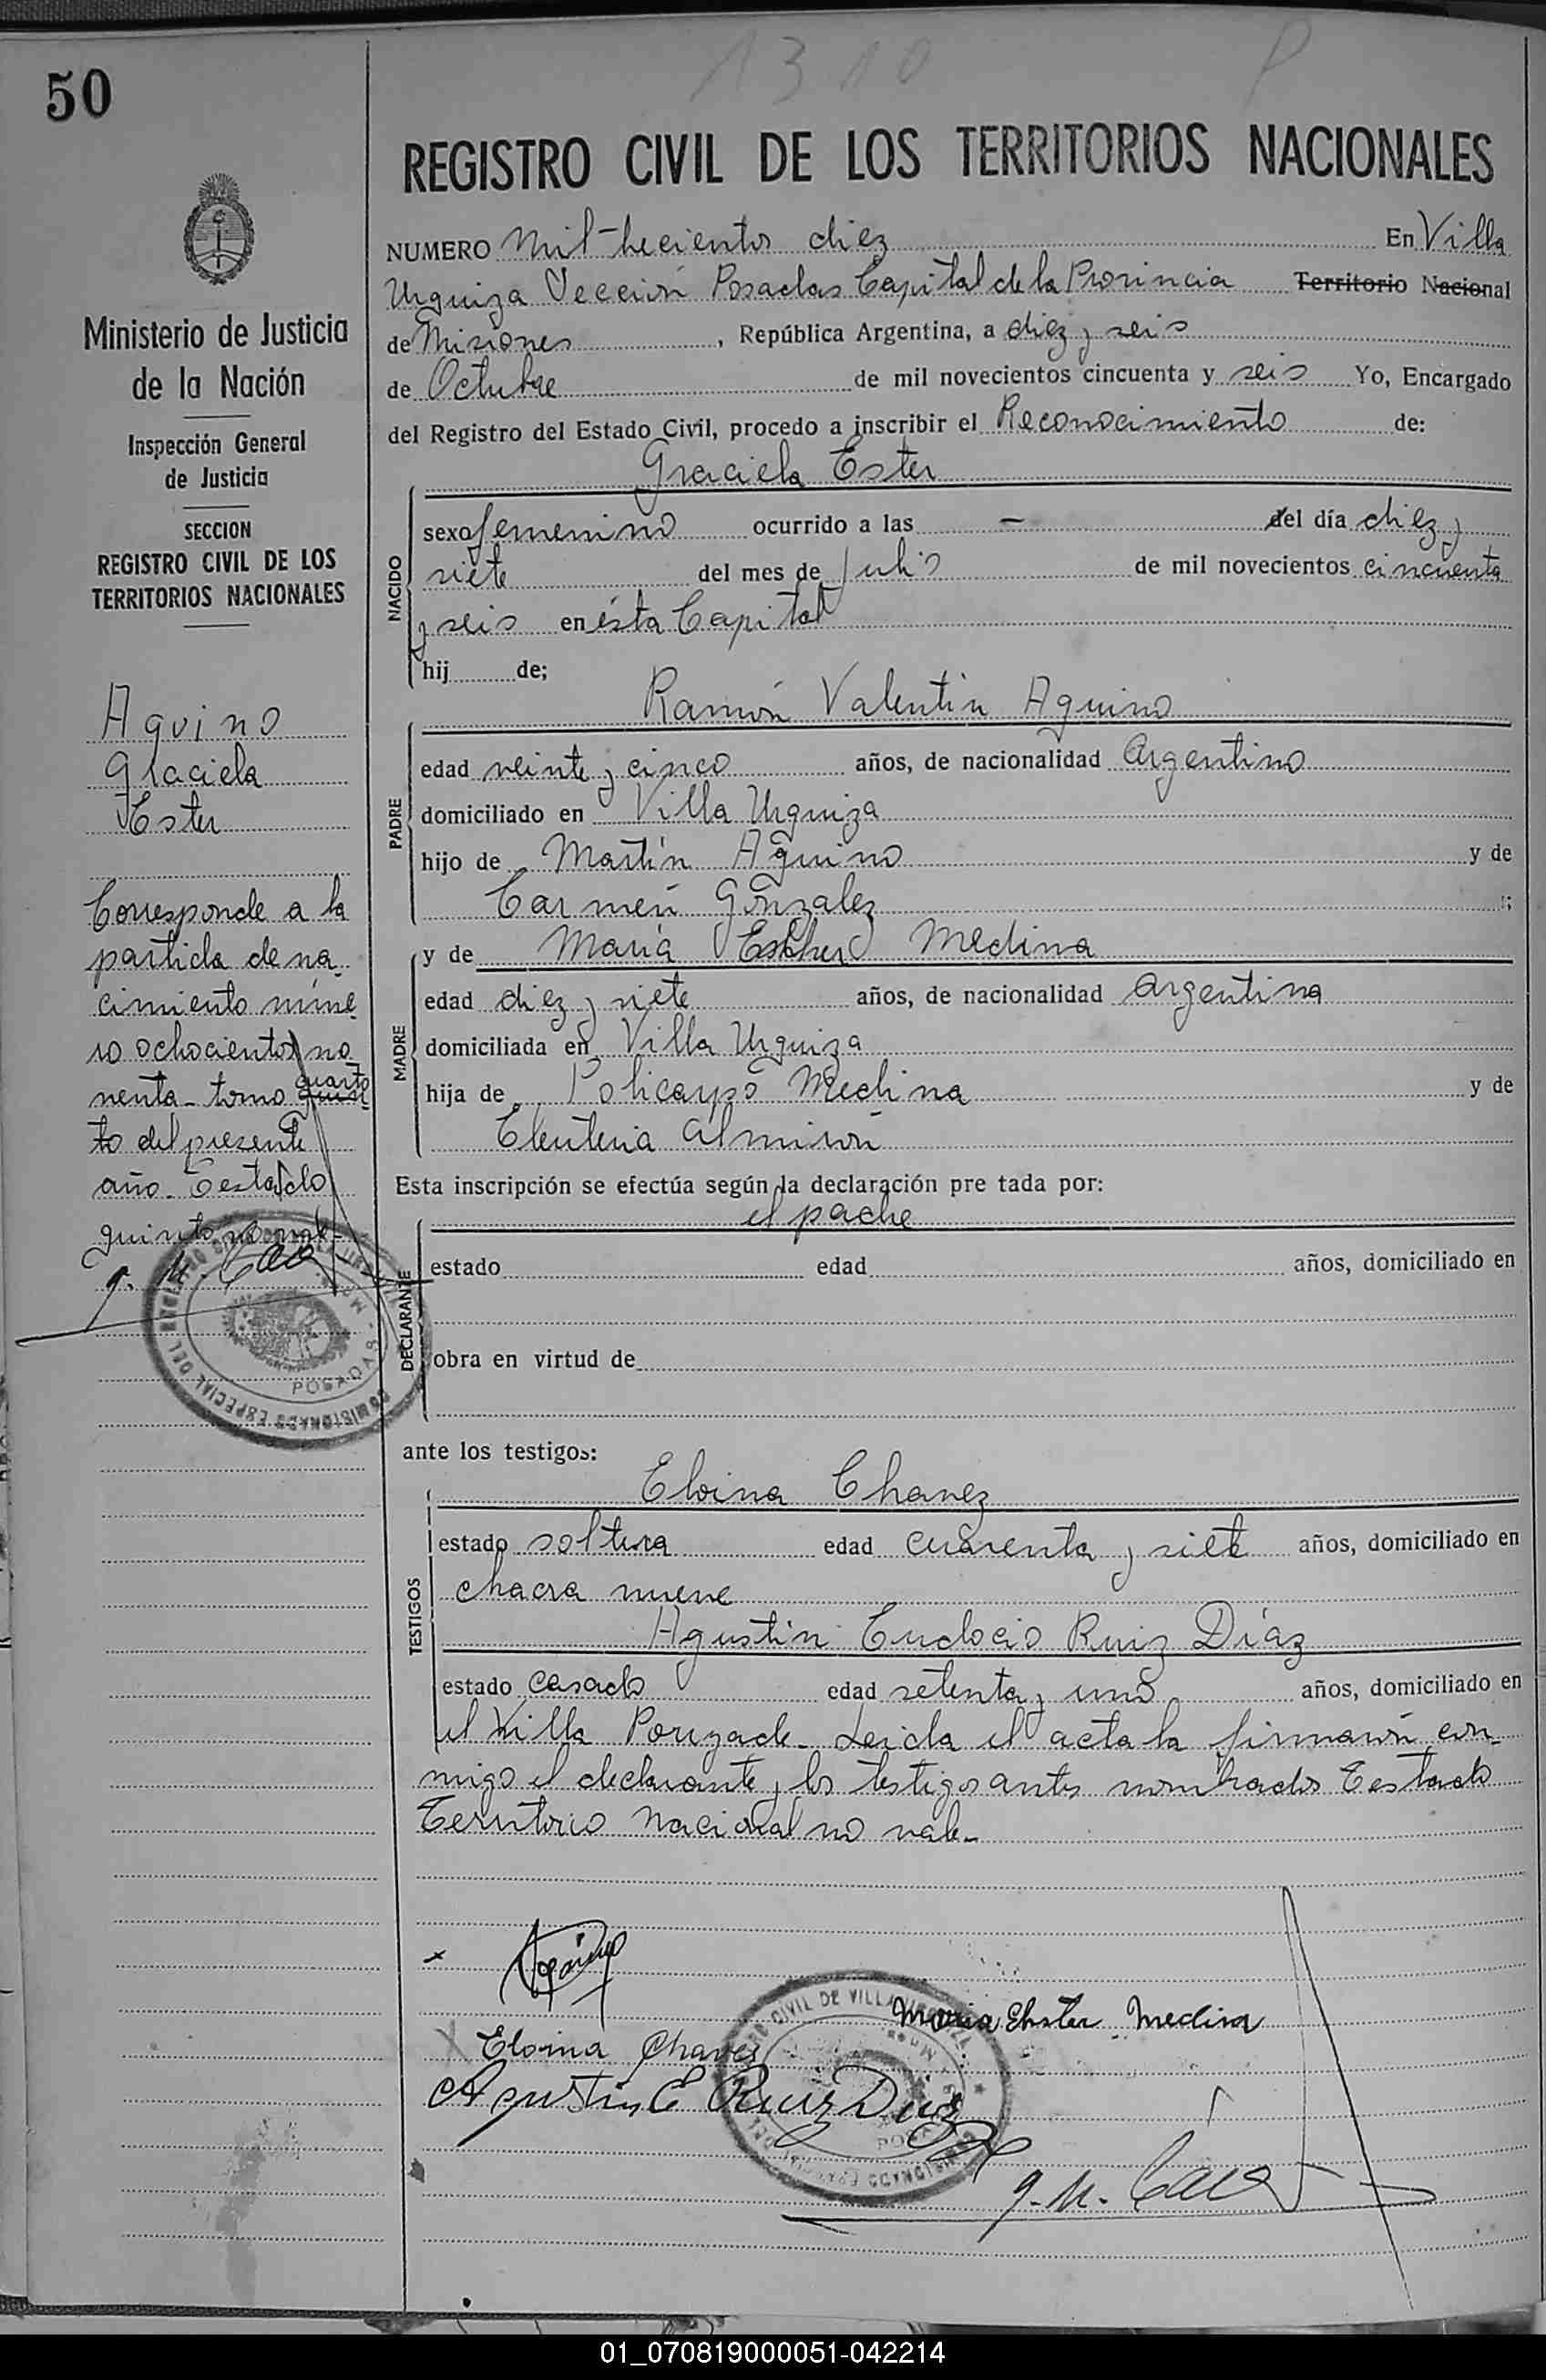 1310 P
50
REGISTRO CIVIL DE LOS TERRITORIOS NACIONALES
Ministerio de Justicia
de la Nación
Inspección General
de Justicia
SECCION
REGISTRO CIVIL DE LOS
TERRITORIOS NACIONALES
Aquino
Graciela
Ester
Corresponde a la
partida de na
cimiento núme
ro ochocientos no
venta - tomo quin cuarto
to del presente
año. Testado
quinto no vale
NUMERO Mil trecientos diez En Villa
Urquiza Sección Posadas Capital de la Provincia Territorio Nacional
de Misiones, República Argentina, a diez y seis
de Octubre de mil novecientos cincuenta y seis Yo, Encargado
del Registro del Estado Civil, procedo a inscribir el Reconocimiento de:
Graciela Ester
NACIDO
sexo femenino ocurrido a las — del día diez y
siete del mes de Julio de mil novecientos cincuenta
y seis en ésta Capital
hij de;
Ramón Valentín Aquino
PADRE
edad veinte y cinco años, de nacionalidad Argentino
domiciliado en Villa Urquiza
hijo de Martín Aquino y de
Carmen Gonzalez
y de María Esther Medina
MADRE
edad diez y siete años, de nacionalidad Argentina
domiciliada en Villa Urquiza
hija de Policarpo Medina y de
Eleuteria Almirón
Esta inscripción se efectúa según la declaración pre tada por:
el padre
DECLARANTE
estado edad años, domiciliado en
obra en virtud de
ante los testigos:
Eloina Chavez
TESTIGOS
estado soltera edad cuarenta y siete años, domiciliado en
chacra nueve
Agustin Eudocio Ruiz Díaz
estado casado edad setenta y uno años, domiciliado en
el Villa Pouzade - Leida el acta la firmaron con
migo el declarante y los testigos antes nombrados Testado
Territorio Nacional no vale.
Maria Ehster Medina
Eloina Chavez
Agustin E Ruiz Diaz
01_070819000051-042214